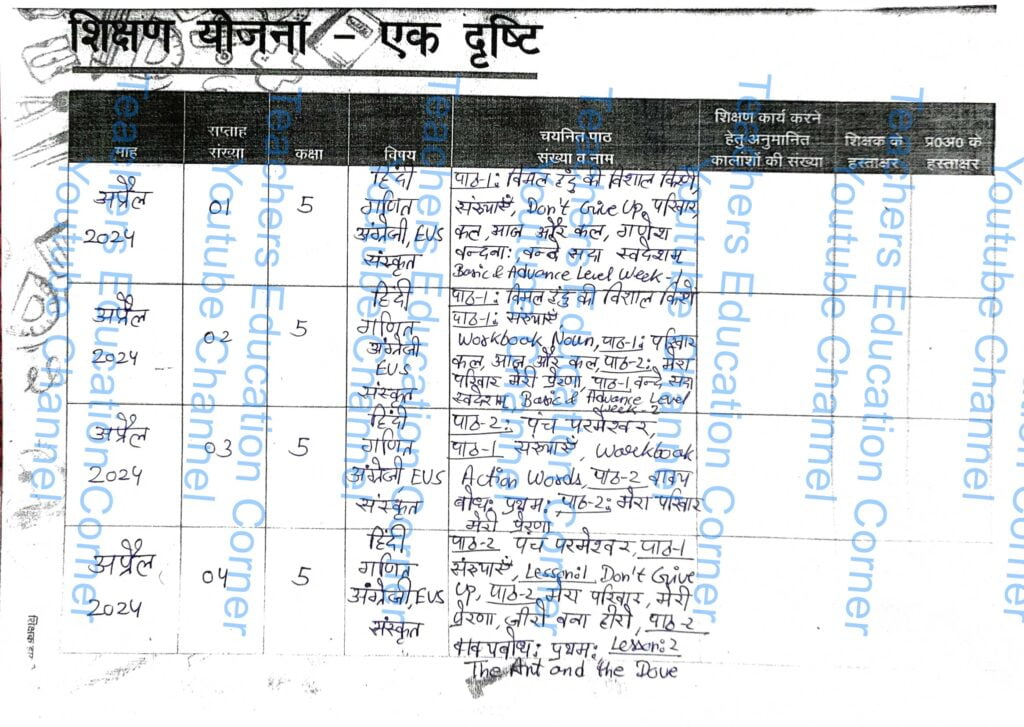 शिक्षण योजना - एक दृष्टि
माह
सप्ताह
संख्या
कक्षा
विषय
चयनित पाठ
संख्या व नाम
शिक्षण कार्य करने
हेतु अनुमानित
कालांशों की संख्या
शिक्षक के
हस्ताक्षर
प्र०अ० के
हस्ताक्षर
अप्रैल
2024
01
5
हिंदी
गणित
अंग्रेजी, EVS
संस्कृत
पाठ-1: विमल इंदु की विशाल किरणें,
संख्याएँ, Don't Give Up, परिवार,
कल, आज और कल, गणेश
वन्दना: वन्दे सदा स्वदेशम
Basic & Advance Level Week-1
अप्रैल
2024
02
5
हिंदी
गणित
अंग्रेजी
EVS
संस्कृत
पाठ-1: विमल इंदु की विशाल किरणें
पाठ-1: संख्याएँ,
Workbook Noun, पाठ-1: परिवार
कल, आज और कल, पाठ-2: मेरा
परिवार मेरी प्रेरणा, पाठ-1 वन्दे सदा
स्वदेशम Basic & Advance Level
Week-2
अप्रैल
2024
03
5
हिंदी
गणित
अंग्रेजी EVS
संस्कृत
पाठ-2: पंच परमेश्वर,
पाठ-1 संख्याएँ, Workbook
Action Words, पाठ-2 वाक्य
बोध: प्रथम: पाठ-2: मेरा परिवार
मेरी प्रेरणा
अप्रैल
2024
04
5
हिंदी
गणित
अंग्रेजी, EVS
संस्कृत
पाठ-2 पंच परमेश्वर, पाठ-1
संख्याएँ, Lesson:1 Don't Give
Up, पाठ-2 मेरा परिवार, मेरी
प्रेरणा, जीरो बना हीरो, पाठ-2
वाक्यबोध: प्रथम: Lesson:2
The Ant and the Dove
Teachers Education Corner
Youtube Channel
Teachers Education Corner
Youtube Channel
Teachers Education Corner
Youtube Channel
Teachers Education Corner
Youtube Channel
Teachers Education Corner
Youtube Channel
Teachers Education Corner
Youtube Channel